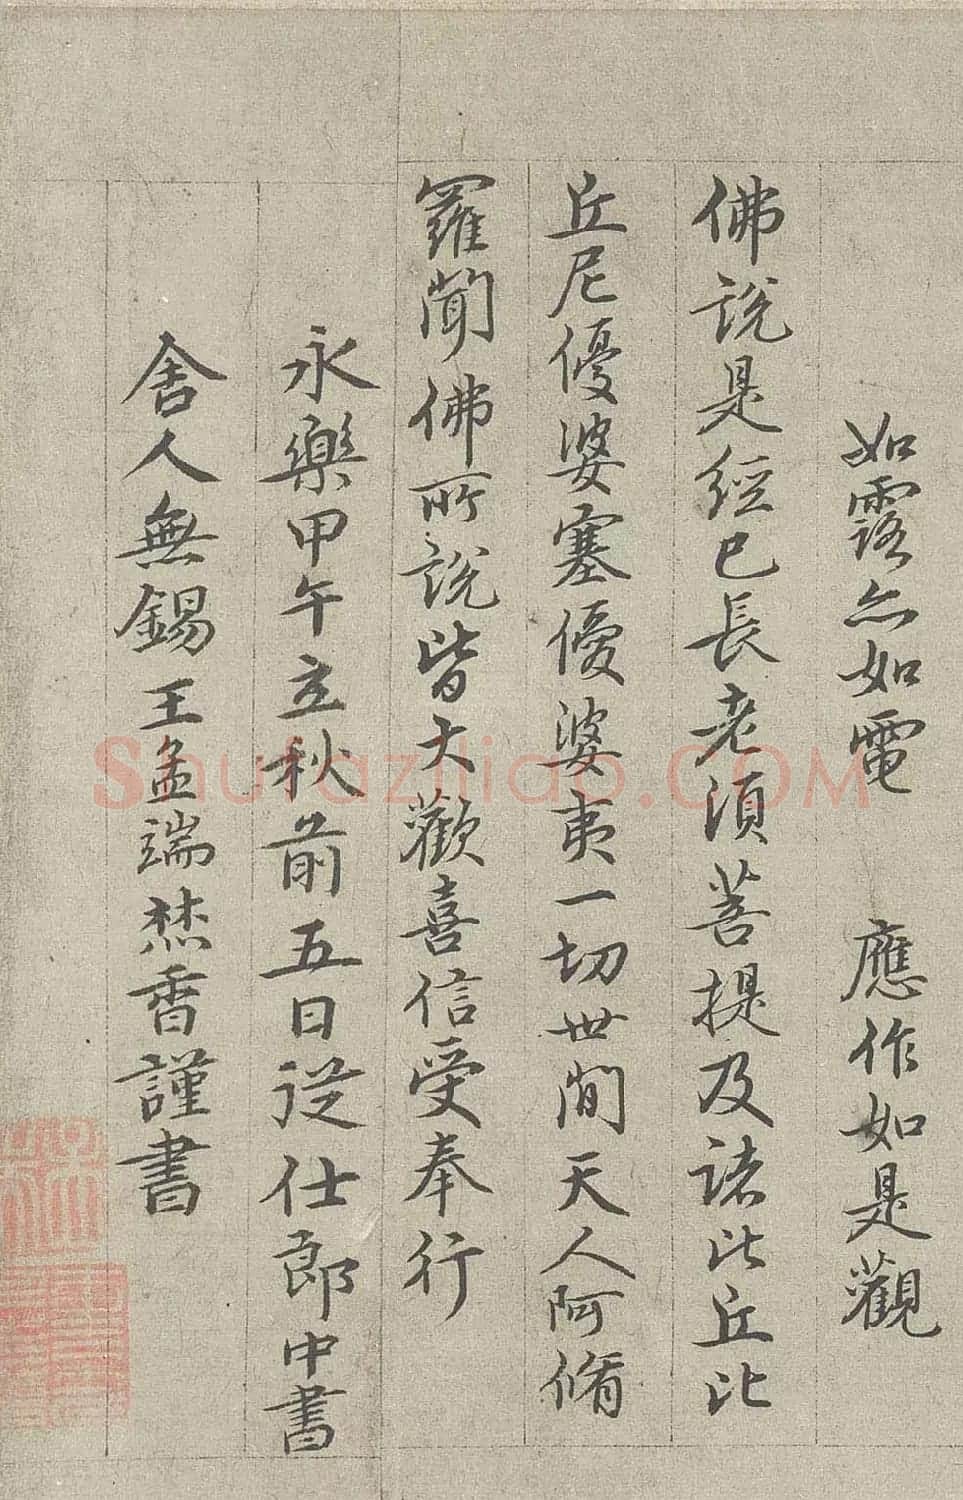 如露亦如電 應作如是觀
佛說是經已長老須菩提及諸比丘比
丘尼優婆塞優婆夷一切世間天人阿脩
羅聞佛所說皆大歡喜信受奉行
永樂甲午立秋前五日從仕郎中書
舍人無錫王孟端焚香謹書
shufaziliao.COM